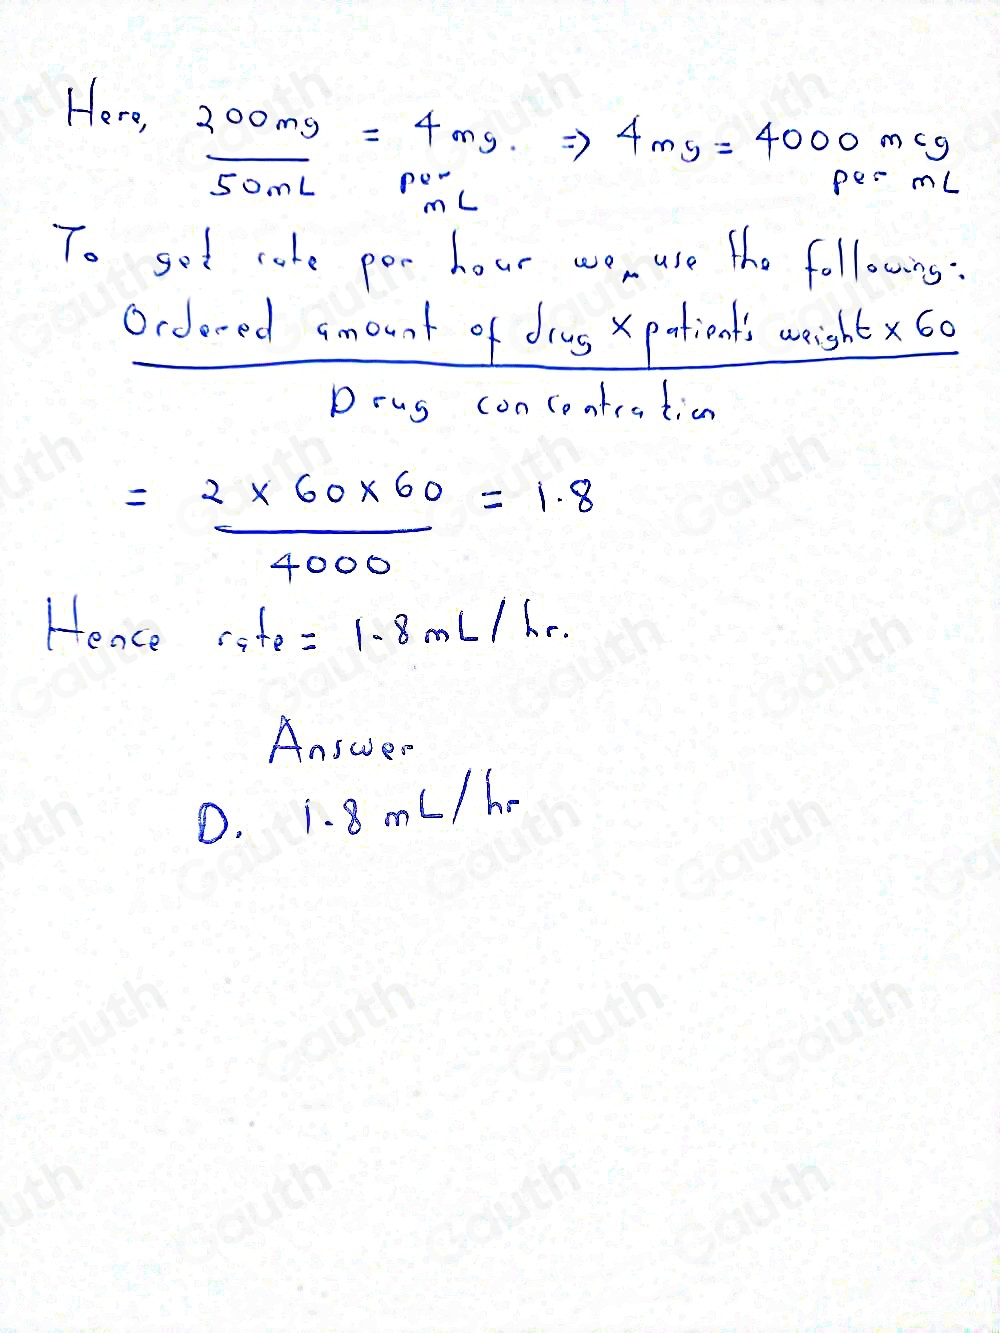 Here, 200mg = 4mg. => 4mg = 4000 mcg
50mL per mL per mL
To get rate per hour we use the following:
Ordered amount of drug x patient's weight x 60
Drug concentration
= 2 x 60 x 60 = 1.8
4000
Hence rate = 1.8mL/hr.
Answer
D. 1.8 mL/hr